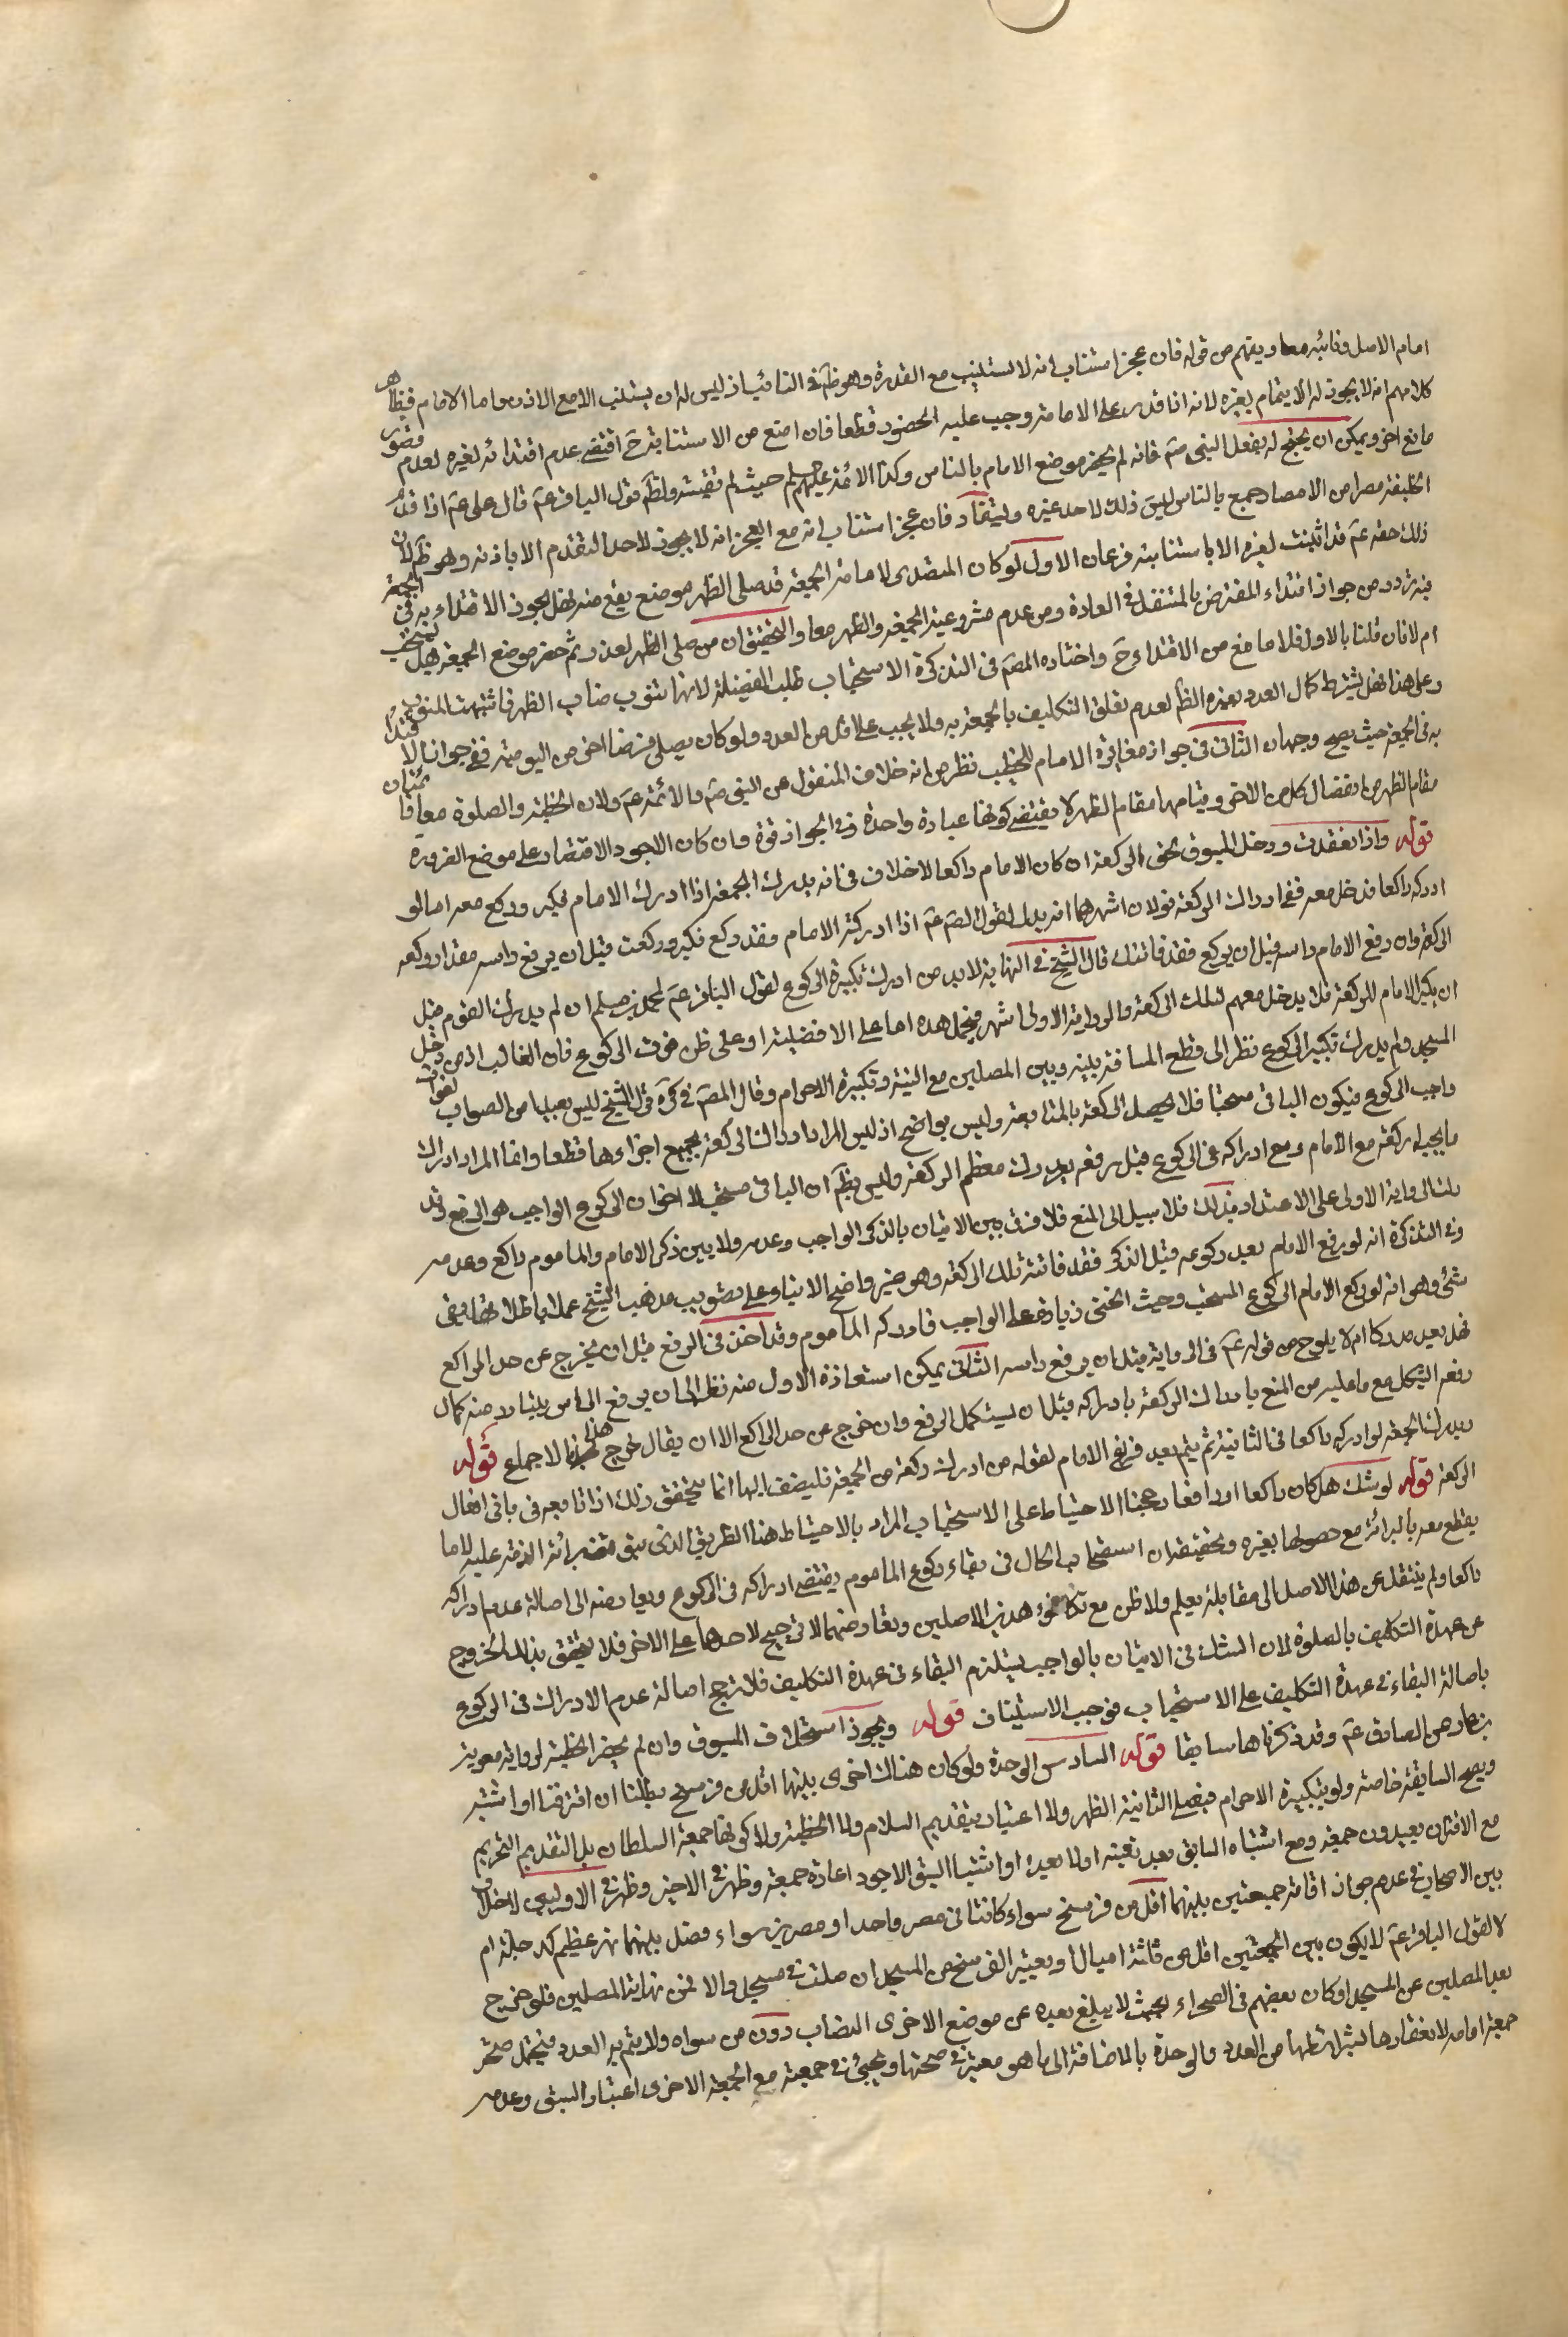 امام الاصل ونائبه معا ويفهم من قوله فان عجز استناب انه لا يستنيب مع القدرة وهو ظَم في النائب اذ ليس له ان يستنيب الا مع الاذن واما الامام فظاهر
كلامهم انه لا يجوز له الايتمام بغيره لانه اذا قدر على الامامة وجب عليه الحضور قطعا فان امتنع من الاستنابة حَ اقتضى عدم اقتدائه لغيره لعدم قصور
مانع اخر ويمكن ان يحتج له بفعل النبي صَم فانه لم يحضر موضع الامام بالناس وكذا الائمة عليهم السلم حيث لم تفيته ولظَم قول الباقر عَم قال علي عَم اذا قدم
الخليفة مصرا من الامصار جمع بالناس ليس ذلك لاحد غيره ويستفاد فان عجز استناب انه مع العجز انه لا يجوز لاحد التقدم الا باذنه وهو ظَم لان
ذلك حقه عَم قد اثبتت لغيره الا باستنابته فرعان الاول لو كان المتصدى لامامة الجمعة قد صلى الظهر موضع يقع منه فهل يجوز الاقتداء به في الجمعة
فيه تردد من جواز اقتداء المفترض بالمتنفل في العادة ومن عدم مشروعية الجمعة والظهر معا والتحقيق ان من صلى الظهر لعذر ثم حضر موضع الجمعة هل تستحب
ام لا فان قلنا بالاول فلا مانع من الاقتداء حَ واختاره المصَم في التذكرة الاستحباب طلبا لفضيلة لانها تنوب مناب الظهر فاشبهت المنفرد
وعلى هذا فهل يشترط كمال العدد بغيره الظَم لعدم تعلق التكليف بالجمعة به ولا يجب على اقل من العدد ولو كان يصلي فرضا اخر من اليومية ففي جواز الاقتداء
به في الجمعة حيث يصح وجهان الثاني في جواز مغايرة الامام للخطيب نظر من انه خلاف المنقول من النبي صَم والائمة عَم ولان الخطبة والصلوة معا قائمتان
مقام الظهر من انفصال كل من الاخر وقيامهما مقام الظهر لا يقتضي كونها عبادة واحدة وفي الجواز قوة وان كان الاجود الاقتصار على موضع الضرورة
قوله واذا انعقدت ودخل المسبوق لحق الركعة ان كان الامام راكعا لا خلاف في انه يدرك الجمعة اذا ادرك الامام فكبر وركع معه اما لو
ادركه راكعا فدخل معه ففي ادراك الركعة قولان اشهرهما انه يدرك لقول الصَم عَم اذا ادركت الامام وقد ركع فكبر وركعت قبل ان يرفع راسه فقد ادركت
الركعة وان رفع الامام راسه قبل ان يركع فقد فاتتك قال الشيخ في النهاية لابد من ادراك تكبيرة الركوع لقول الباقر عَم لمحمد بن مسلم ان لم يدرك القوم قبل
ان يكبر الامام للركعة فلا يدخل معهم لتلك الركعة والرواية الاولى اشهر فيحمل هذه اما على الافضلية او على ظن فوت الركوع فان الغالب ان من دخل
المسجد ولم يدرك تكبير الركوع نظر الى قطع المسافة بينه وبين المصلين مع النية وتكبيرة الاحرام وقال المصَم في كرَة قول الشيخ ليس بعيدا من الصواب لفوات
واجب الركوع فيكون الباقي مستحبا فلا يحصل الركعة بالمتابعة وليس بواضح اذ ليس المراد ادراك الركعة بجميع اجزاءها قطعا وانما المراد ادراك
ما يجيله ركعة مع الامام ومع ادراكه في الركوع قبل رفعه يدرك معظم الركعة وليس بظَم ان الباقي مستحب لا اخوان الركوع الواجب هو الرفع وقد
دلت الرواية الاولى على الاعتداد بذلك فلا سبيل الى المنع فلا فرق بين الاتيان بالذكر الواجب وعدمه ولا بين ذكر الامام والماموم راكع وعدمه
وفي التذكرة انه لو رفع الامام بعد ركوعه قبل الذكر فقد فاتته تلك الركعة وهو غير واضح الا بناء على تصويب مذهب الشيخ عملا باطلاقها بقى
شئ وهو انه لو ركع الامام الركوع المستحب وحيث انحنى زيادة على الواجب فادركه الماموم وقد اخذ في الرفع قبل ان يخرج عن حد الراكع
فهل يعيد مدركا ام لا يلوح من قوله عَم في الرواية قبل ان يرفع راسه الثاني يمكن استعادة الاول منه نظرا الى ان يرفع الراس يتبادر منه كمال
رفعه الشكل مع ما عليه من المنع بادراك الركعة بادراكه قبل ان يستكمل الرفع وان خرج عن حد الراكع الا ان يقال خرج هذا بالاجماع قوله
ويدرك الجمعة لو ادركه راكعا في الثانية ثم يتم بعد فراغ الامام لقوله من ادرك ركعة من الجمعة فليضف اليها انما يتحقق ذلك اذا تابعه في باقي افعال
الركعة قوله لو شك هل كان راكعا او رافعا رجحنا الاحتياط على الاستصحاب المراد بالاحتياط هنا الطريق الذي يتيقن معه برائة الذمة عليه لا ما
يقطع معه بالبرائة مع حصولها بغيره وتحقيقه ان استصحاب الحال في بقاء ركوع الماموم يقتضي ادراكه في الركوع ويعارضه الى اصالة عدم ادراكه
راكعا ولم ينتقل عن هذا الاصل الى مقابله بعلم ولا ظن مع تكافؤ هذين الاصلين وتعارضهما لا ترجيح لاحدهما على الاخر فلا يتحقق بذلك الخروج
عن عهدة التكليف بالصلوة لان الشك في الاتيان بالواجب يستلزم البقاء في عهدة التكليف فلا ترجح اصالة عدم الادراك في الركوع
باصالة البقاء في عهدة التكليف على الاستصحاب فوجب الاستيناف قوله ويجوز استخلاف المسبوق وان لم يحضر الخطبة لرواية معوية
بن عمار عن الصادق عَم وقد ذكرناها سابقا قوله السادس الوحدة ولو كان هناك اخرى بينهما اقل من فرسخ بطلتا ان اقترنتا او اشتبه
ويصح السابقة خاصة ولو بتكبيرة الاحرام فيصلي الثانية الظهر ولا اعتبار بتقديم السلام ولا الخطبة ولا كونها جمعة السلطان بل بالتقديم التحريم
مع الاقتران يعيدون جمعة ومع اشتباه السابق بعد تعينه او لا بعده او اشتباه السبق الاجود اعادة جمعة وظهر في الاخير وظهر في الاوليين لا خلاف
بين الاصحاب في عدم جواز اقامة جمعتين بينهما اقل من فرسخ سواء كانتا في مصر واحد او مصرين سواء فصل بينهما نهر عظيم كدجلة ام
لا لقول الباقر عَم لا يكون بين الجمعتين اقل من ثلثة اميال ويعتبر الفرسخ من المسجد ان صليت في مسجد والا فمن نهاية المصلين فلو خرج
بعد المصلين عن المسجد او كان بعضهم في الصحراء بحيث لا يبلغ بعده عن موضع الاخرى النصاب دون من سواه ولا يتم به العدد فيحتمل صحة
جمعة امامه لانعقادها بشرائطها من العدد والوحدة بالاضافة الى ما هو معتبر في صحتها ويجيئ في جمعته مع الجمعة الاخرى اعتبار السبق وعدمه